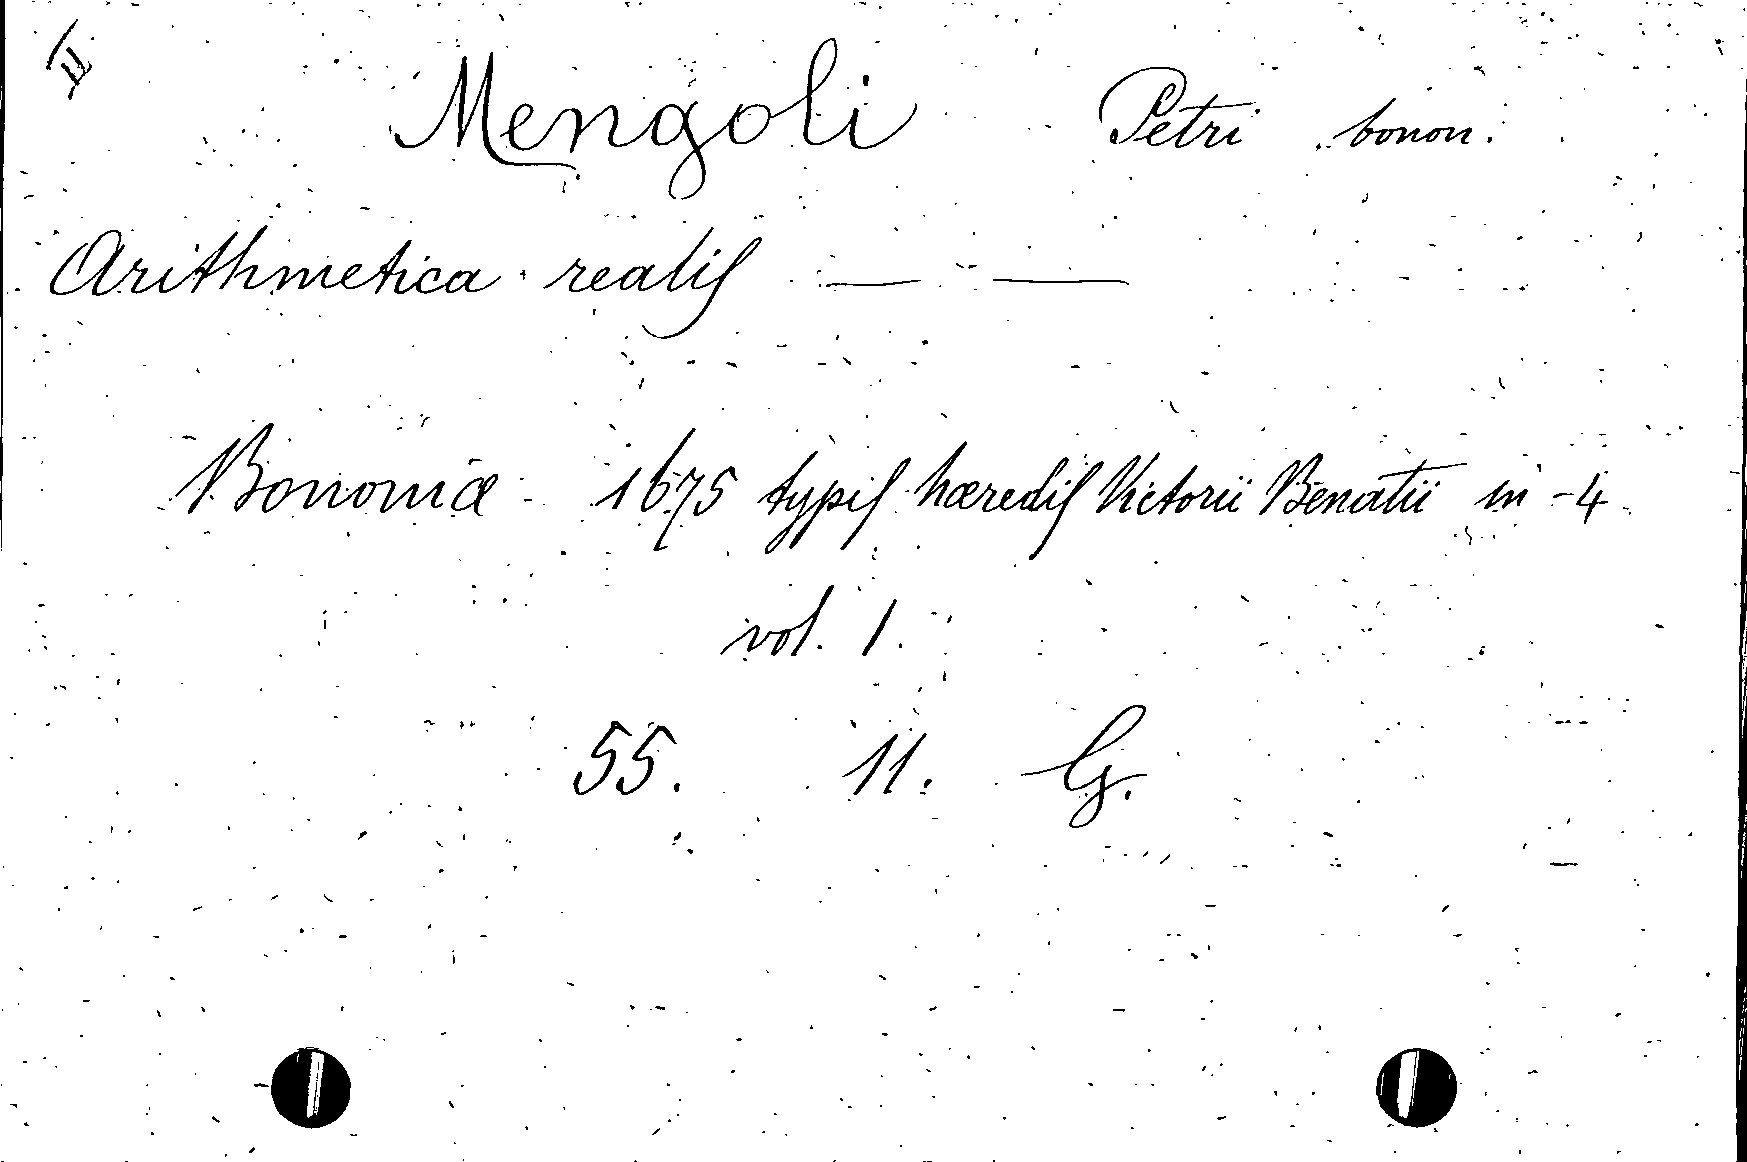 II
Mengoli Petri bonon.
Arithmetica realis — —
Bononiæ 1675 typis hæredis Victorii Benatii in-4
vol. 1.
55. 11. G.